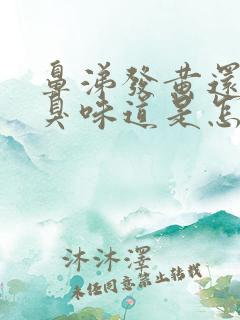 鼻涕發黃還
臭味道是怎
沐沐澤
未經同意禁止轉載